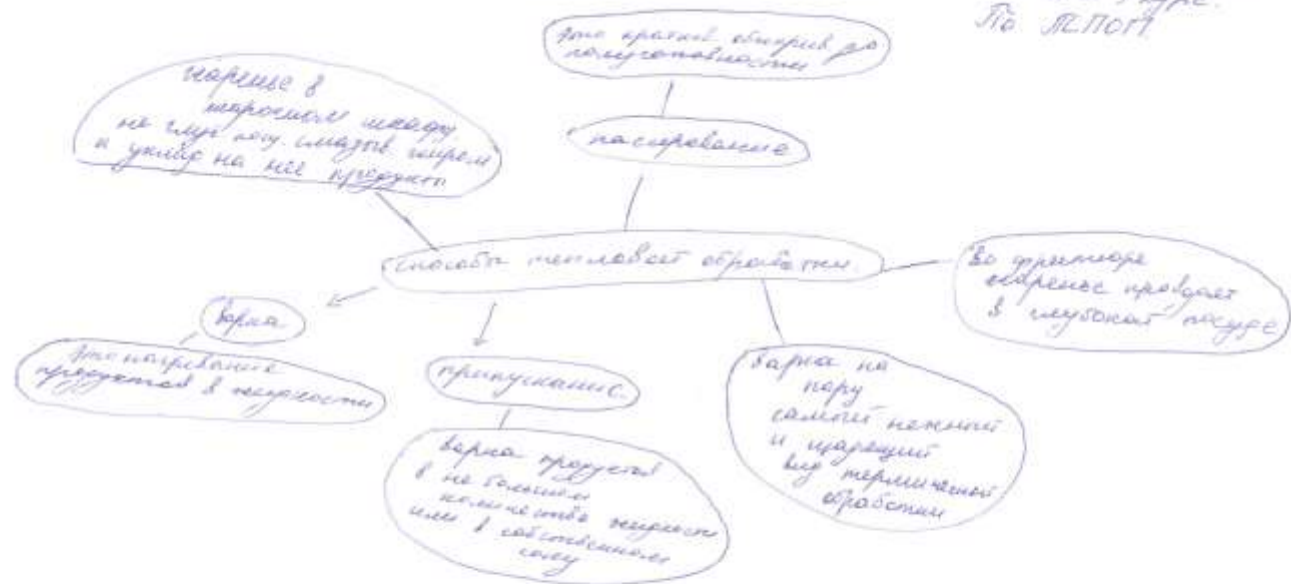 курс.
По ТСПОП
Это краткий обжарив до
полуготовности
пасирование
жаренье в
жарочном шкафу.
на глуб посу. смазыв. жиром
и уклад на неё продукты
способы тепловой обработки.
Во фритюре
жаренье проводят
в глубокой посуде
Варка
Это нагревание
продуктов в жидкости
припускание.
варка продуктов
в не большом
количестве жидкости
или в собственном
соку
Варка на
пару
самый нежный
и щадящий
вид термической
обработки